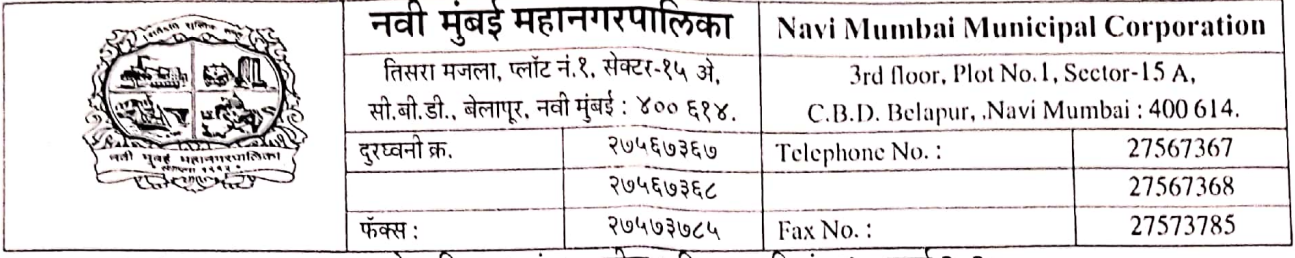 नवी मुंबई महानगरपालिका
तिसरा मजला, प्लॉट नं.१, सेक्टर-१५ अे,
सी.बी.डी., बेलापूर, नवी मुंबई : ४०० ६१४.
दुरध्वनी क्र. २७५६७३६७
२७५६७३६८
फॅक्स : २७५७३७८५
Navi Mumbai Municipal Corporation
3rd floor, Plot No.1, Sector-15 A,
C.B.D. Belapur, .Navi Mumbai : 400 614.
Telephone No. : 27567367
27567368
Fax No. : 27573785
नवी मुंबई महानगरपालिका